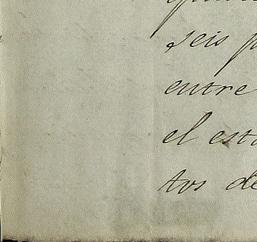 seis p
entre
el est
tos de